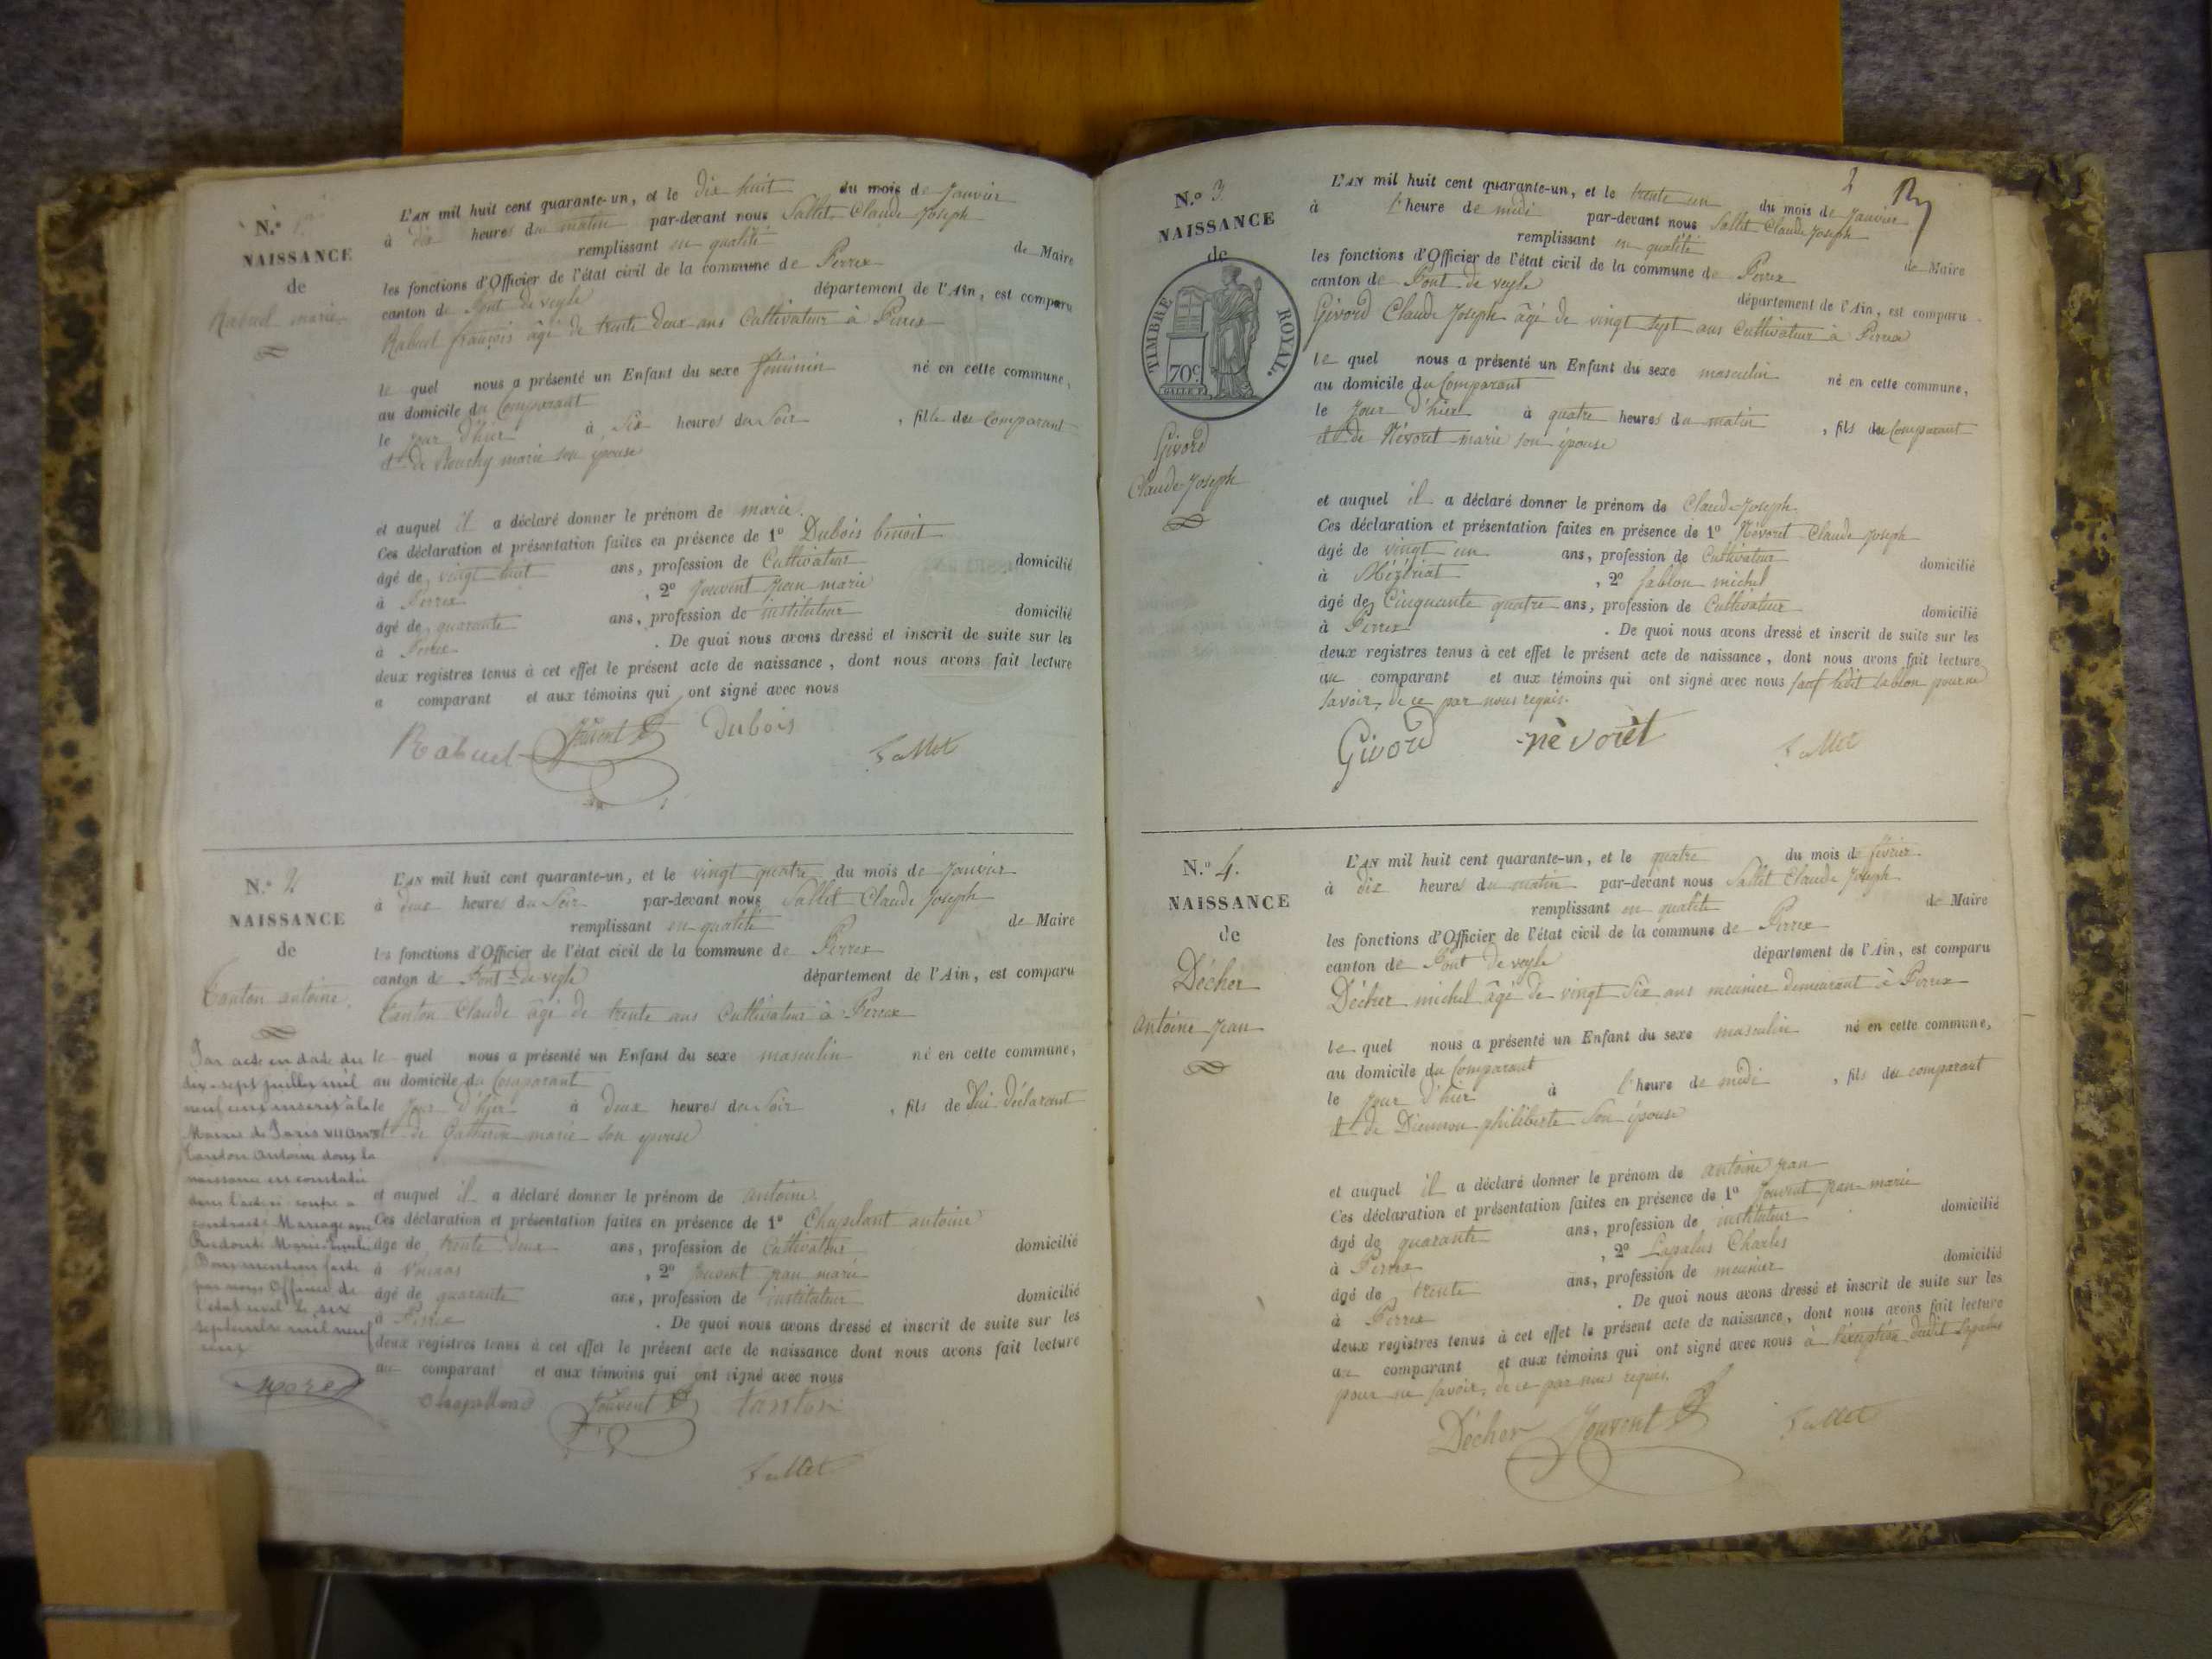 N.º 1
NAISSANCE
de
Rabuel marie
L'AN mil huit cent quarante-un, et le dix huit du mois de Janvier
à dix heures du matin par-devant nous Sallet Claude Joseph
remplissant en qualité de Maire
les fonctions d'Officier de l'état civil de la commune de Perrex
canton de Pont de veyle département de l'Ain, est comparu
Rabuel françois âgé de trente deux ans Cultivateur à Perrex
le quel nous a présenté un Enfant du sexe féminin né en cette commune,
au domicile du Comparant
le jour d'hier à six heures du Soir , fille du Comparant
et de marie son épouse
et auquel il a déclaré donner le prénom de marie.
Ces déclaration et présentation faites en présence de 1º Dubois benoit
âgé de vingt huit ans, profession de Cultivateur domicilié
à Perrex , 2º Jouvent Jean marie
âgé de quarante ans, profession de instituteur domicilié
à Perrex . De quoi nous avons dressé et inscrit de suite sur les
deux registres tenus à cet effet le présent acte de naissance, dont nous avons fait lecture
a comparant et aux témoins qui ont signé avec nous
Rabuel Jouvent Dubois
Sallet
N.º 2
NAISSANCE
de
Tanton antoine.
L'AN mil huit cent quarante-un, et le vingt quatre du mois de Janvier
à deux heures du Soir par-devant nous Sallet Claude Joseph
remplissant en qualité de Maire
les fonctions d'Officier de l'état civil de la commune de Perrex
canton de Pont-de-veyle département de l'Ain, est comparu
Tanton Claude âgé de trente ans Cultivateur à Perrex
le quel nous a présenté un Enfant du sexe masculin né en cette commune,
au domicile du Comparant
le Jour d'hier à deux heures du Soir , fils de lui déclarant
et de marie son épouse
et auquel il a déclaré donner le prénom de antoine.
Ces déclaration et présentation faites en présence de 1º Chapelant antoine
âgé de trente deux ans, profession de Cultivateur domicilié
à Vonnas , 2º Jouvent jean marie
âgé de quarante ans, profession de instituteur domicilié
à Perrex . De quoi nous avons dressé et inscrit de suite sur les
deux registres tenus à cet effet le présent acte de naissance dont nous avons fait lecture
au comparant et aux témoins qui ont signé avec nous
Jouvent tanton
Sallet
Par acte en date du
dix-sept juillet mil
neuf cent inscrit à la
Mairie de Paris VII arrt
Tanton Antoine dont la
naissance est constatée
dans l'acte ci contre a
contracté Mariage avec
Marie
Dont mention faite
par nous Officier de
l'état civil le six
septembre mil neuf
cent
Morel
2
N.º 3
NAISSANCE
de
TIMBRE ROYAL.
70c
Givord
Claude-Joseph
L'AN mil huit cent quarante-un, et le trente un du mois de Janvier
à l'heure de midi par-devant nous Sallet Claude Joseph
remplissant en qualité de Maire
les fonctions d'Officier de l'état civil de la commune de Perrex
canton de Pont de veyle département de l'Ain, est comparu
Givord Claude Joseph âgé de vingt sept ans Cultivateur à Perrex
le quel nous a présenté un Enfant du sexe masculin né en cette commune,
au domicile du Comparant
le jour d'hier à quatre heures du matin , fils du Comparant
et de Névoret marie son épouse
et auquel il a déclaré donner le prénom de Claude-Joseph.
Ces déclaration et présentation faites en présence de 1º Névoret Claude Joseph
âgé de vingt un ans, profession de Cultivateur domicilié
à Mézériat , 2º Sablon michel
âgé de Cinquante quatre ans, profession de Cultivateur domicilié
à Perrex . De quoi nous avons dressé et inscrit de suite sur les
deux registres tenus à cet effet le présent acte de naissance, dont nous avons fait lecture
au comparant et aux témoins qui ont signé avec nous sauf ledit Sablon pour ne
savoir, de ce par nous requis.
Givord névoret Sallet
N.º 4.
NAISSANCE
de
Décher
Antoine Jean
L'AN mil huit cent quarante-un, et le quatre du mois de février
à dix heures du matin par-devant nous Sallet Claude Joseph
remplissant en qualité de Maire
les fonctions d'Officier de l'état civil de la commune de Perrex
canton de Pont de veyle département de l'Ain, est comparu
Décher michel âgé de vingt six ans meunier demeurant à Perrex
le quel nous a présenté un Enfant du sexe masculin né en cette commune,
au domicile du Comparant
le jour d'hier à l'heure de midi , fils du comparant
et de philiberte son épouse
et auquel il a déclaré donner le prénom de antoine jean
Ces déclaration et présentation faites en présence de 1º Jouvent jean-marie
âgé de quarante ans, profession de instituteur domicilié
à Perrex , 2º Lapalus Charles
âgé de trente ans, profession de meunier domicilié
à Perrex . De quoi nous avons dressé et inscrit de suite sur les
deux registres tenus à cet effet le présent acte de naissance, dont nous avons fait lecture
au comparant et aux témoins qui ont signé avec nous à l'exception dudit Lapalus
pour ne savoir, de ce par nous requis.
Décher Jouvent Sallet